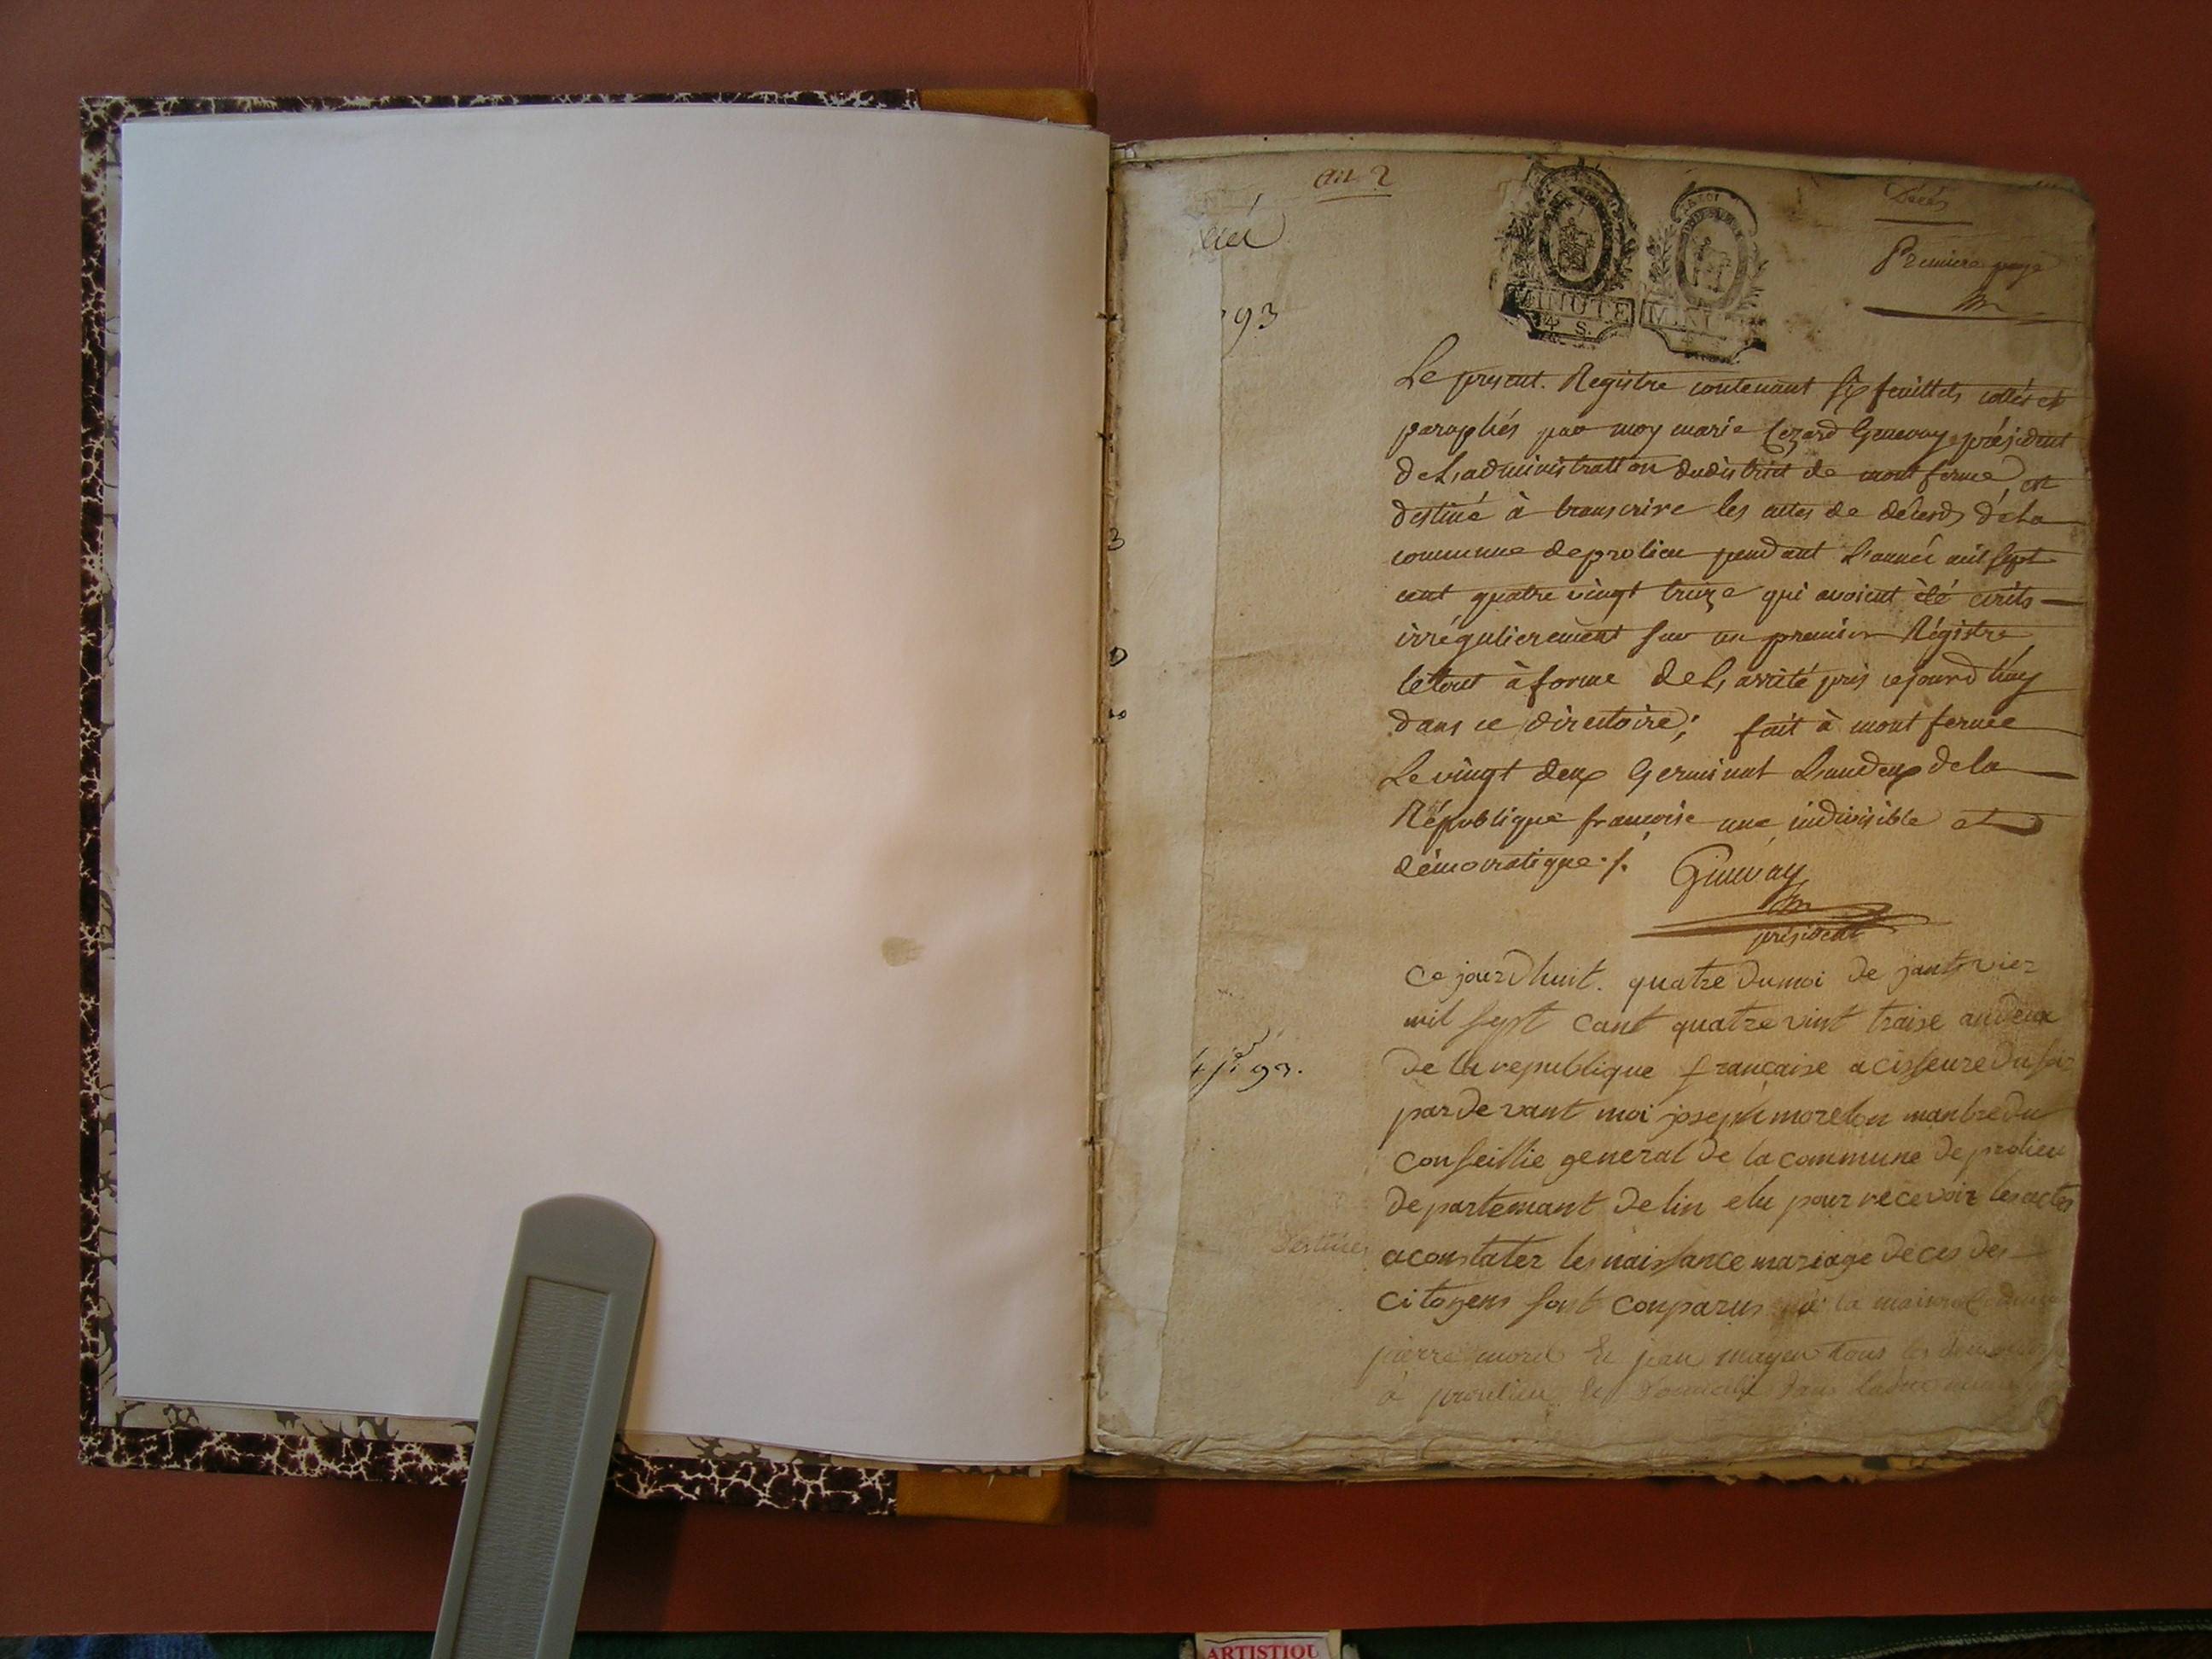 an 2
Décés
Premiere page
93
LA LOI
MINUTE
4 S.
MINUTE
Le present. Registre contenant six feuillets cottés et
paraphés par moy marie Cezard Genevay président
de L'administration du district de mont ferme est
destiné à transcrire les actes de décesd de La
commune de prolieu pendant L'année mil sept
cent quatre vingt treize qui avoient été ecrits
irrégulierement sur un premier Régistre
le tout à forme de L'arrêté pris cejourd'huy
dans ce directoire; fait à mont ferme
Le vingt deux Germinal L'an deux de la
République francoise une indivisible et
démocratique ./.
Genevay
président
Ce jourdhuit. quatre du moi de jantvier
mil sept cant quatre vint traise an deux
de la republique francaise a cisseure du soir
par devant moi joseph morelon manbre du
conseillie general de la commune de prolieu
departemant de lin elu pour recevoir les actes
4 jer 93.
a constater les naissance mariage deces des
citoyens sont conparus la maison
pierre morel & jean mayen tous les deux
à proulieu & domicilié dans
ARTISTIQU